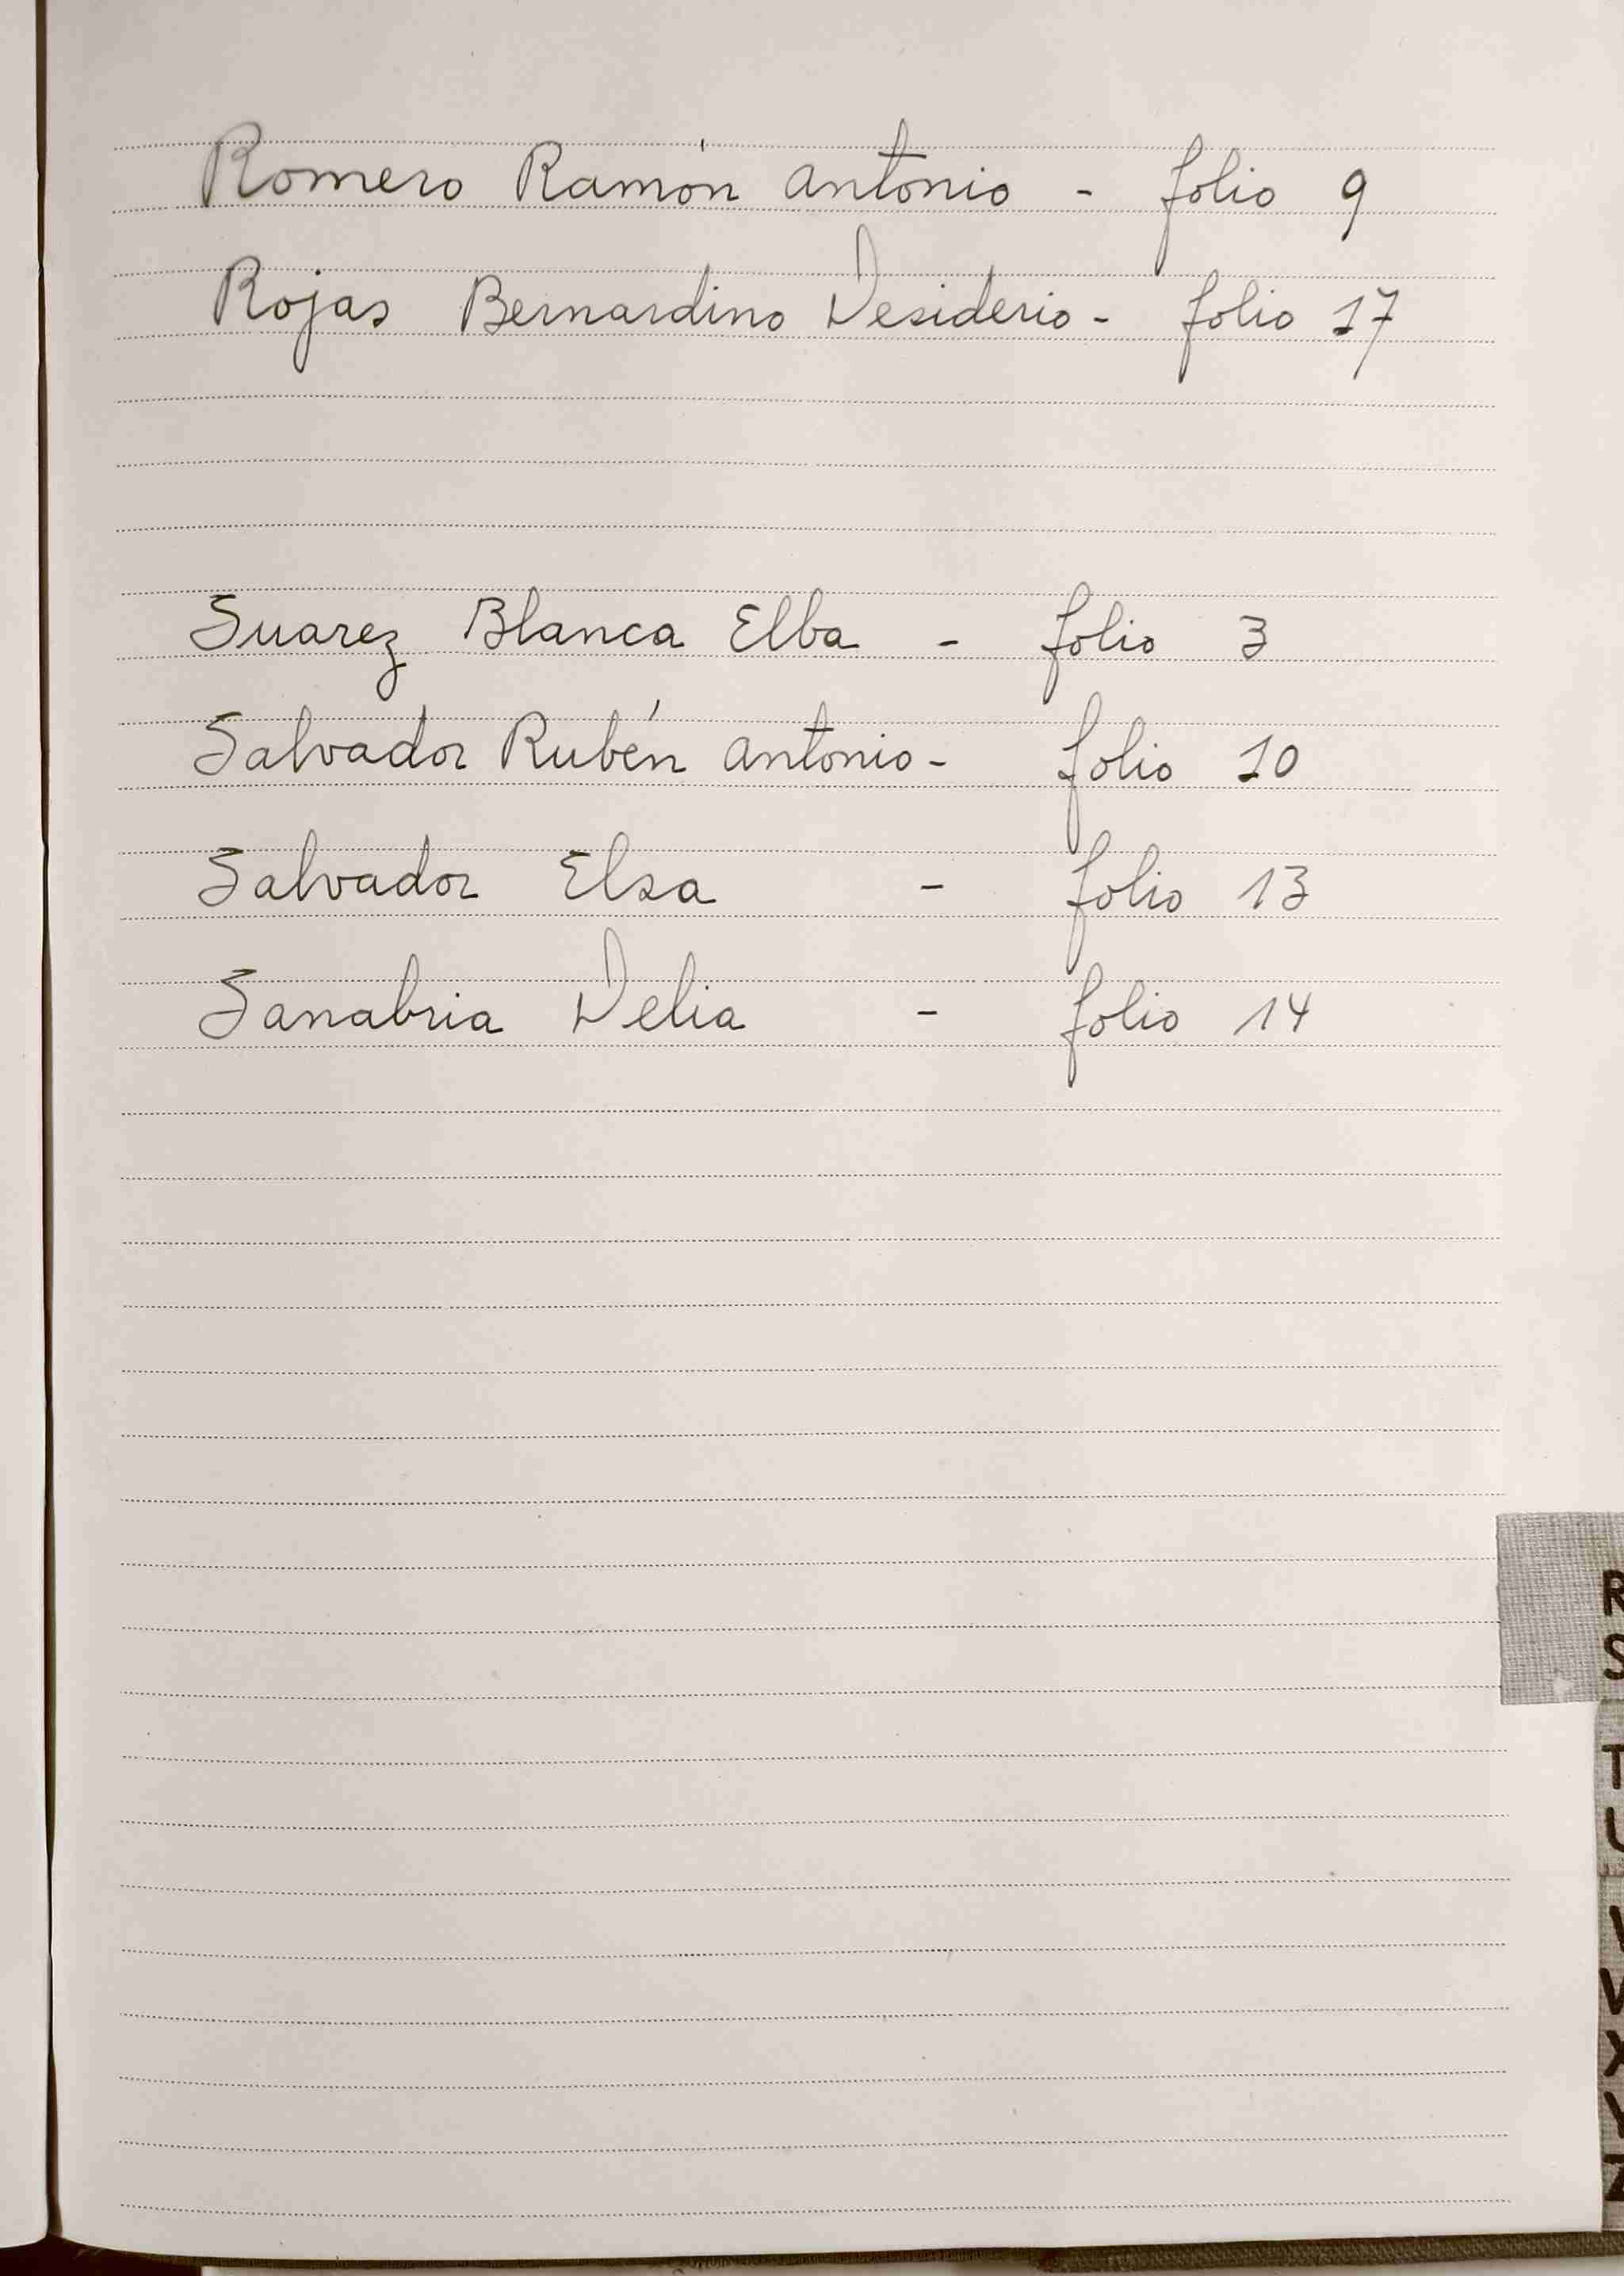 Romero Ramón Antonio - folio 9
Rojas Bernardino Desiderio - folio 17
Suarez Blanca Elba - folio 3
Salvador Rubén Antonio - folio 10
Salvador Elsa - folio 13
Sanabria Delia - folio 14
R
S
T
U
V
W
X
Y
Z